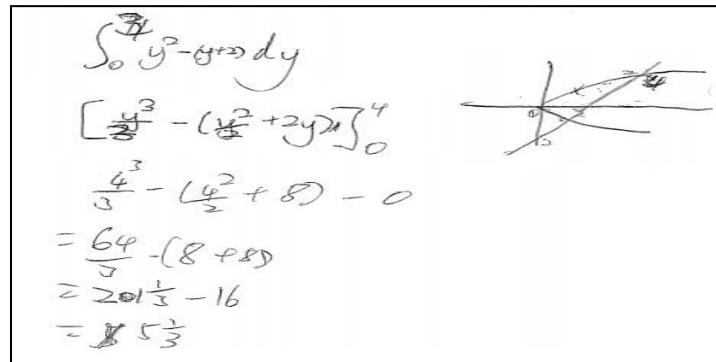 ∫₀⁴ y² - (y+2) dy
[y³/3 - (y²/2 + 2y)]₀⁴
4³/3 - (4²/2 + 8) - 0
= 64/3 - (8 + 8)
= 21 1/3 - 16
= 5 1/3